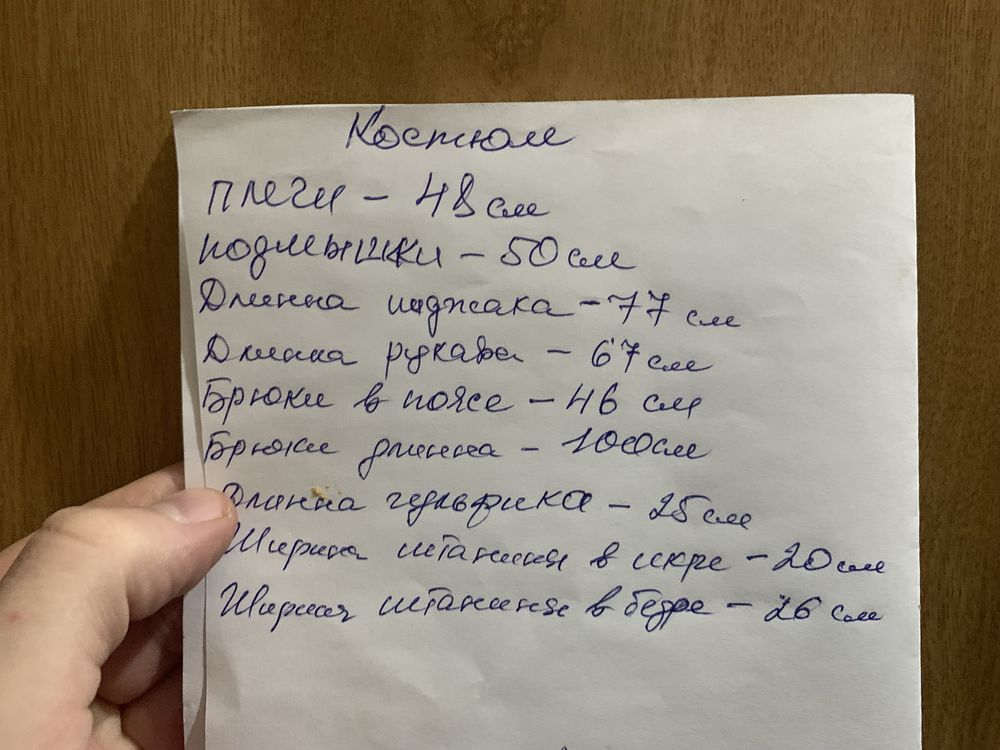 Костюм
плечи - 48 см
подмышки - 50 см
Длинна пиджака - 77 см
Длина рукава - 67 см
Брюки в поясе - 46 см
Брюки длинна - 100 см
Длинна гульфика - 25 см
Ширина штанины в икре - 20 см
Ширина штанины в бедре - 26 см